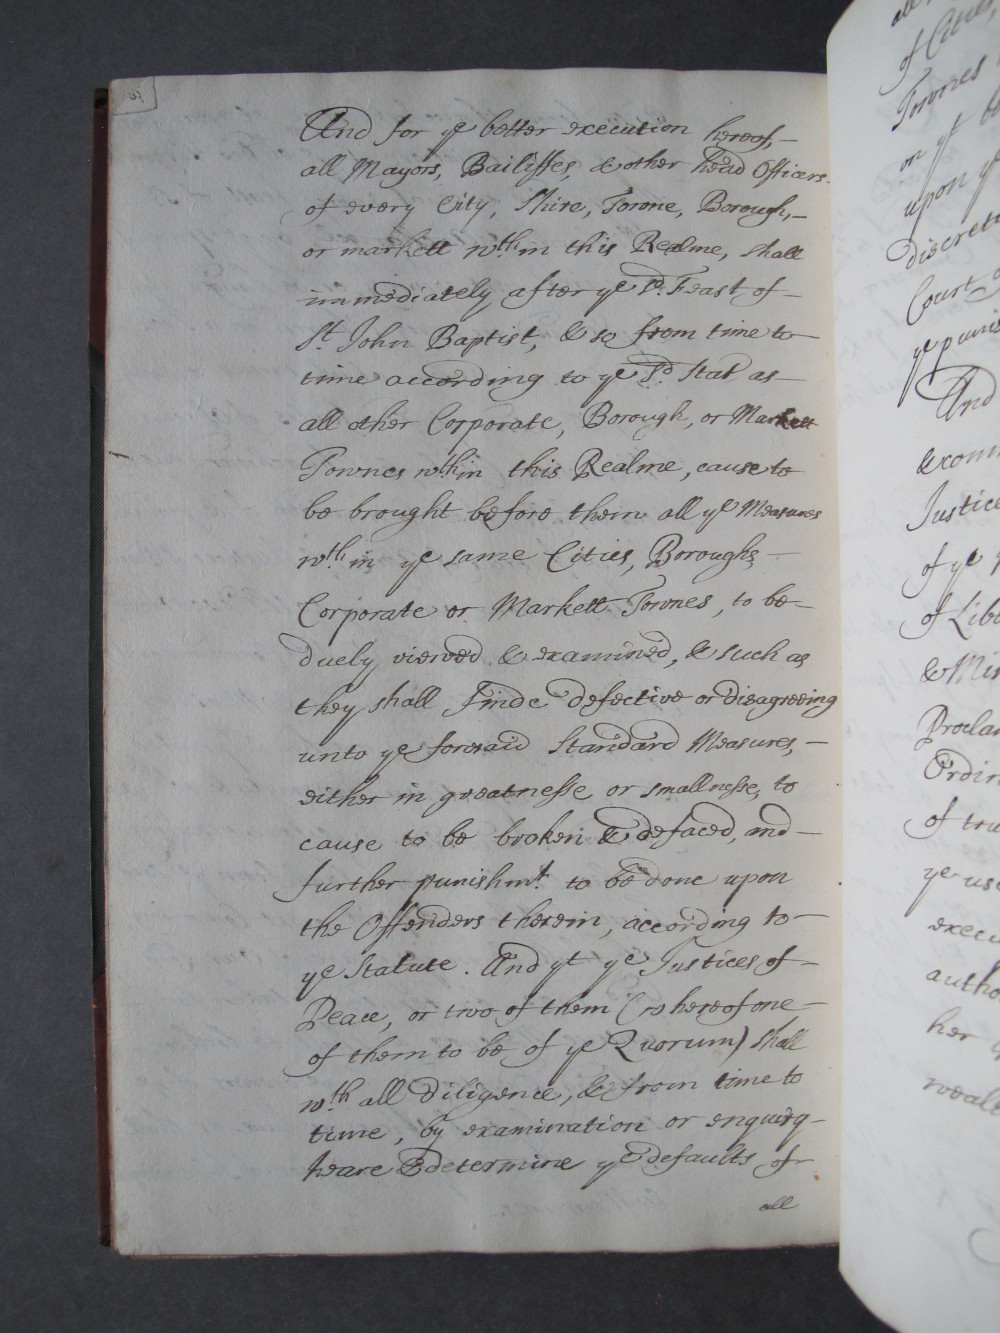 And for ye better execution hereof, –
all Mayors, Bailiffes, & other head Officers
of every City, Shire, Towne, Borough, –
or markett wth in this Realme, shall
immediately after ye sd. Feast of –
St. John Baptist, & so from time to
time according to ye sd. Stat as –
all other Corporate, Borough, or Markett
Townes wthin this Realme, cause to
be brought before them all ye Measures
wth in ye same Cities, Boroughs –
Corporate or Markett Townes, to be –
duely viewed & examined, & such as
they shall Finde defective or disagreeing
unto ye foresaid Standard Measures, –
either in greatnesse or smallnesse, to
cause to be broken & defaced, and –
further punishmt. to be done upon
the Offenders therein, according to –
ye Statute. And yt ye Justices of –
Peace, or two of them (whereof one –
of them to be of ye Quorum) shall
wth all diligence, & from time to
time, by examination or enquiry –
heare & determine ye defaults of
all
of Cities,
Townes
on yt
upon ye
discreti
Court
ye punis
And
& comm
Justice
of ye
of Lib
& Min
Proclam
Ordin
of tru
ye us
execu
autho
her
weale